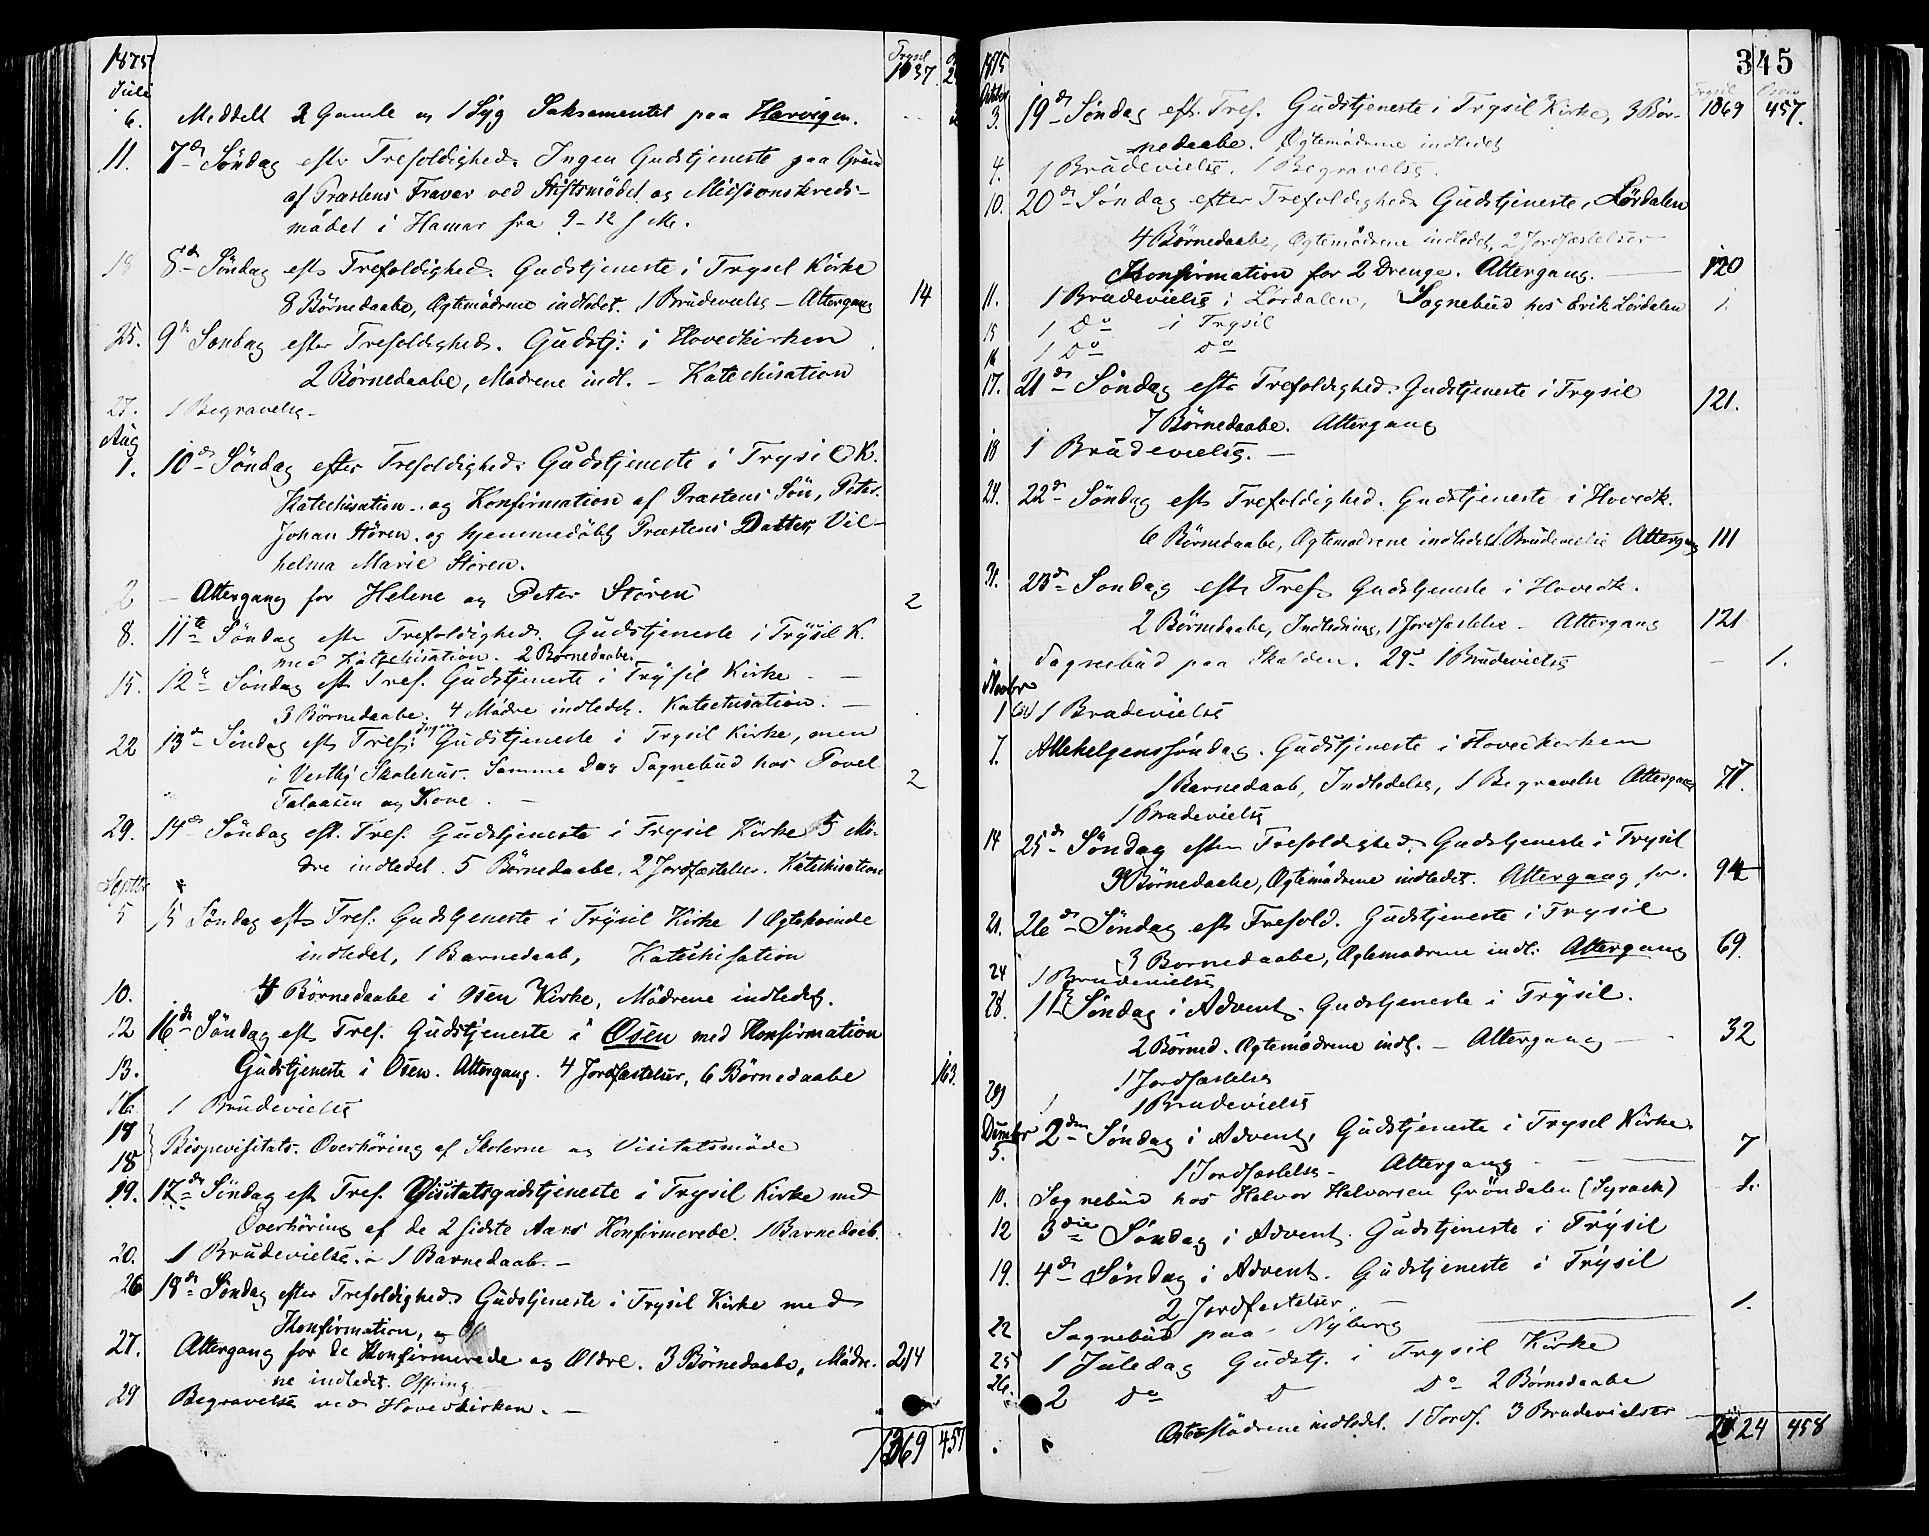 1875
Juli
Trysil
1037
6. Meddelt 2 Gamle og 1 Syg Sakramentet paa Harvigen.
11. 7de Søndag efter Trefoldighed. Ingen Gudstjeneste paa Grund
af Præstens Fravær ved Stiftsmødet og Missionskreds-
mødet i Hamar fra 9-12 f M.
18 8de Søndag eft Trefoldighed. Gudstjeneste i Trysil Kirke
8 Børnedaabe, Ægtemødrene indledet. 1 Brudevielse - Altergang 14
25. 9de Søndag efter Trefoldighed. Gudstj: i Hovedkirken
2 Børnedaabe, Mødrene indl. - Katechisation
27. 1 Begravelse -
Aug
1. 10de Søndag efter Trefoldighed. Gudstjeneste i Trysil K.
Katechisation - og Konfirmation af Præstens Søn, Peter
Johan Støren, og hjemmedøbt Præstens Datter, Vil-
helma Marie Støren.
2 - Altergang for Helene og Peter Støren 2
8. 11te Søndag efter Trefoldighed. Gudstjeneste i Trysil K.
med Katechisation. 2 Børnedaabe.
15. 12te Søndag eft Tref. Gudstjeneste i Trysil Kirke -
3 Børnedaabe. 4 Mødre indledet. Katechisation. -
22 13de Søndag eft Tref: Ingen Gudstjeneste i Trysil Kirke, men
i Vestby Skolehus. Samme Dag Sognebud hos Povel
Talaasen og Kone. - 2
29. 14de Søndag eft. Tref. Gudstjeneste i Trysil Kirke 5 Mø-
dre indledet. 5 Børnedaabe, 2 Jordfæstelser. Katechisation
Septbr
5 15 Søndag eft Tref: Gudstjeneste i Trysil Kirke 1 Ægtekvinde
indledet, 1 Barnedaab, Katechisation
10. 4 Børnedaabe i Osen Kirke, Mødrene indledet.
12 16de Søndag eft Tref. Gudstjeneste i Osen med Konfirmation
13. Gudstjeneste i Osen. Altergang. 4 Jordfæstelser, 6 Børnedaabe 163.
16 1 Brudevielse
17
18 Bispevisitats. Overhøring af Skolerne og Visitatsmøde
19. 17de Søndag eft Tref. Visitatsgudstjeneste i Trysil Kirke med
Overhøring af de 2 sidste Aars Konfirmerede. 1 Barnedaab.
20. 1 Brudevielse. - 1 Barnedaab. -
26 18de Søndag efter Trefoldighed. Gudstjeneste i Trysil Kirke med
Konfirmation,
27. Altergang for de Konfirmerede og Ældre. 3 Børnedaabe, Mødre- 214
ne indledet. Offring
29 Begravelse ved Hovedkirken. -
1269 457
345
1875
Oktbr
Trysil Osen
1069 457.
3. 19de Søndag eft. Tref. Gudstjeneste i Trysil Kirke, 3 Bør-
nedaabe. Ægtemødrene indledet
4. 1 Brudevielse. 1 Begravelse.
10. 20de Søndag efter Trefoldighed Gudstjeneste i Lørdalen
4 Børnedaabe, Ægtemødrene indledet, 2 Jordfæstelser
Konfirmation for 2 Drenge. Altergang. 120
11. 1 Brudevielse i Lørdalen, Sognebud hos Erik Lørdalen 1.
15 1 Do i Trysil
16 1 Do Do
17. 21de Søndag efter Trefoldighed. Gudstjeneste i Trysil
7 Børnedaabe. Altergang 121.
18 1 Brudevielse. -
24. 22de Søndag eft Trefoldighed. Gudstjeneste i Hovedk.
6 Børnedaabe, Ægtemødrene indledet 1 Brudevielse Altergang 111
31. 23de Søndag eft Tref. Gudstjeneste i Hovedk.
2 Børnedaabe, Indledning, 1 Jordfæstelse - Altergang 121
Sognebud paa Skalden. 29de 1 Brudevielse - 1.
Novbr
1 1 Brudevielse
7. Allehelgenssøndag. Gudstjeneste i Hovedkirken
1 Barnedaab, Indledelse, 1 Begravelse Altergang 77.
1 Brudevielse
14 25de Søndag efter Trefoldighed. Gudstjeneste i Trysil
3 Børnedaabe, Ægtemødrene indledet. Altergang for. 94
21. 26de Søndag eft Trefold. Gudstjeneste i Trysil
3 Børnedaabe, Ægtemødrene indl: Altergang 69.
24 1 Brudevielse
28. 1ste Søndag i Advent. Gudstjeneste i Trysil.
2 Børned. Ægtemødrene indl. - Altergang - 32
1 Jordfæstelse
29 1 Brudevielse
Decmbr
5. 2den Søndag i Advent, Gudstjeneste i Trysil Kirke
1 Jordfæstelse - Altergang 7
10. Sognebud hos Halvor Halvorsen Grøndalen (Syrach) 1.
12 3die Søndag i Advent. Gudstjeneste i Trysil
19. 4de Søndag i Advent. Gudstjeneste i Trysil
2 Jordfæstelser. -
22 Sognebud paa Nyberg 1.
25 1 Juledag Gudstj. i Trysil Kirke
26. 2 Do D Do 2 Børnedaabe
Ægtemødrene indledet. 1 Jordf. 3 Brudevielser
2024 458